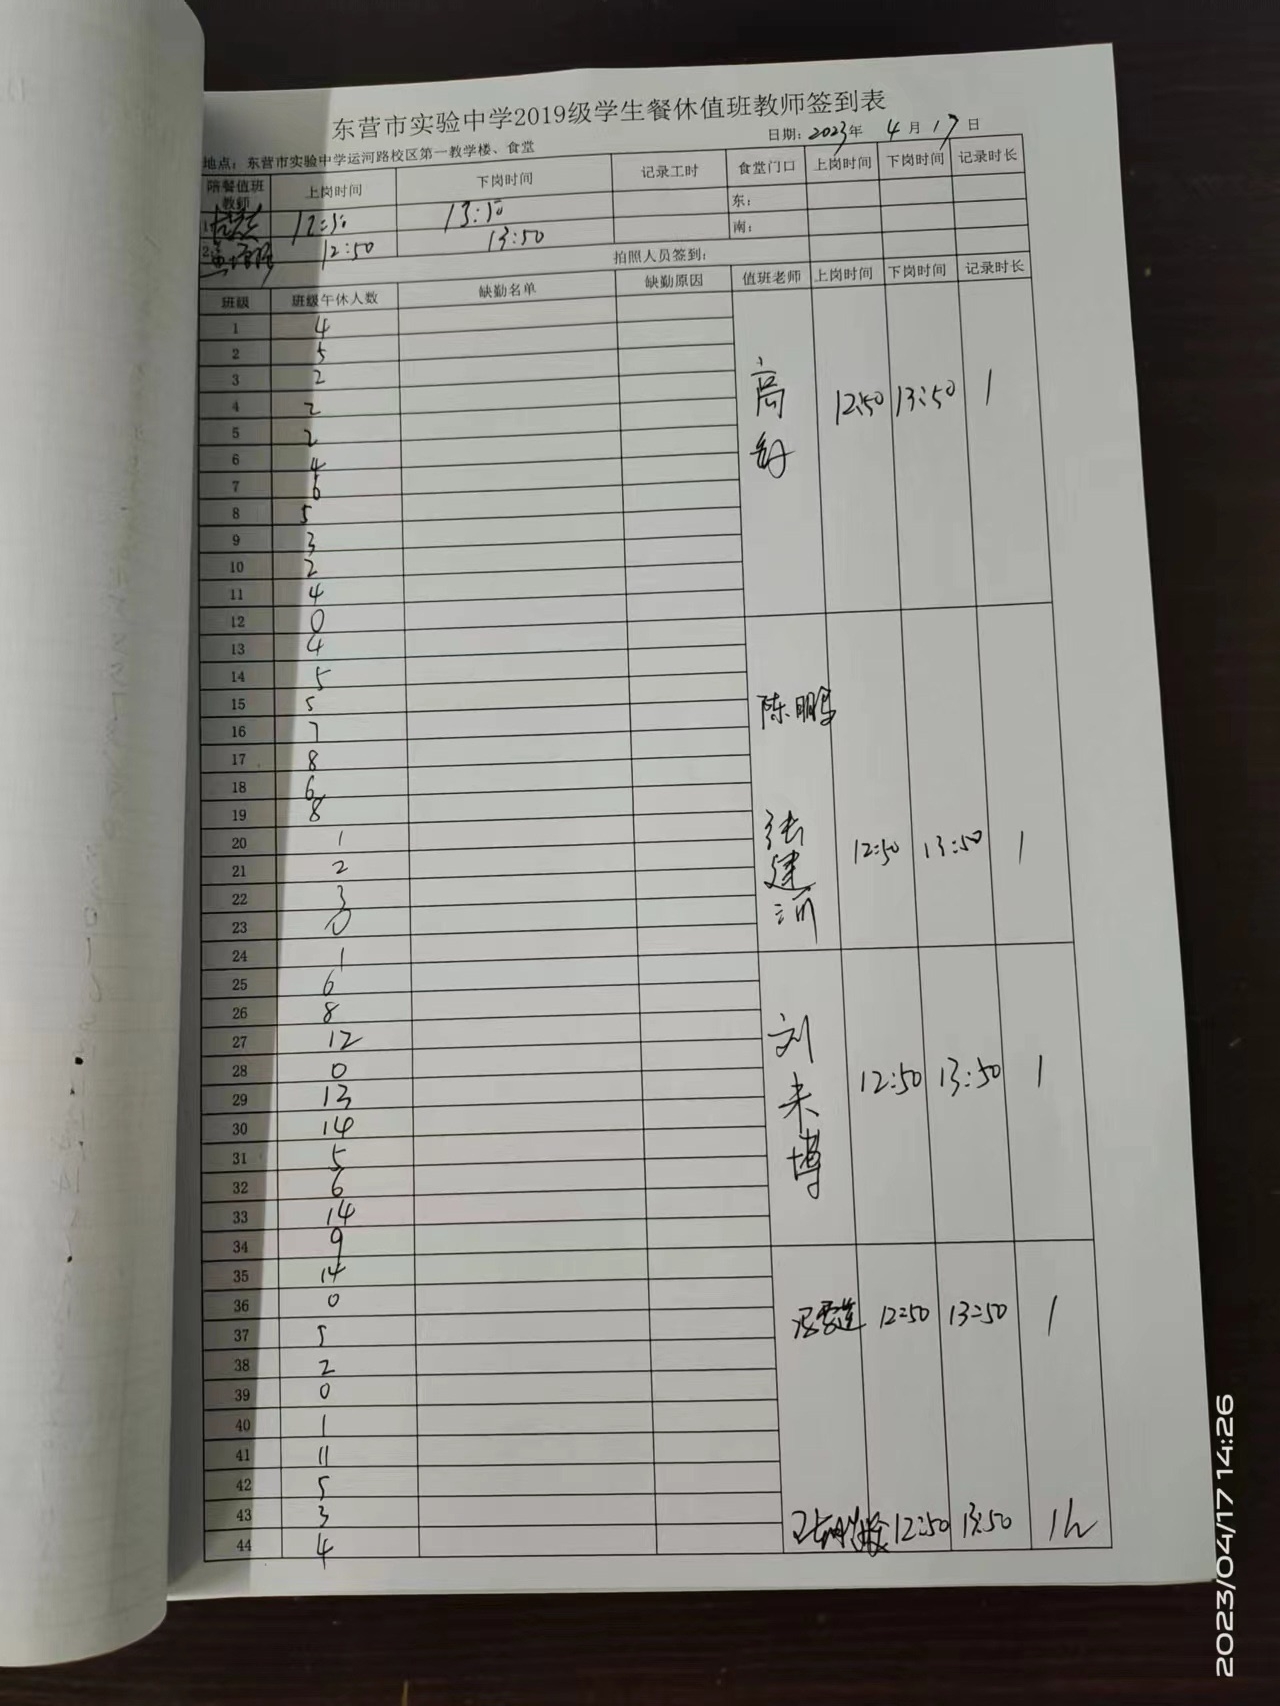 东营市实验中学2019级学生餐休值班教师签到表
日期：2023年 4月17日
地点：东营市实验中学运河路校区第一教学楼、食堂
陪餐值班教师 上岗时间 下岗时间 记录工时 食堂门口 上岗时间 下岗时间 记录时长
1. 12:50 13:50 东：
2. 12:50 13:50 南：
拍照人员签到：
班级 班级午休人数 缺勤名单 缺勤原因 值班老师 上岗时间 下岗时间 记录时长
1 4
2 5
3 2
4 2 高 12:50 13:50 1
5 2
6 4
7 6
8 5
9 3
10 2
11 4
12 0
13 4
14 5
15 5 陈鹏
16 7
17 8
18 6
19 8
20 1
21 2 张建河 12:50 13:50 1
22 3
23 0
24 1
25 6
26 8
27 12
28 0
29 13 刘来博 12:50 13:50 1
30 14
31 5
32 6
33 14
34 9
35 14
36 0
37 5 冯雪莲 12:50 13:50 1
38 2
39 0
40 1
41 11
42 5
43 3
44 4 12:50 13:50 1h
2023/04/17 14:26